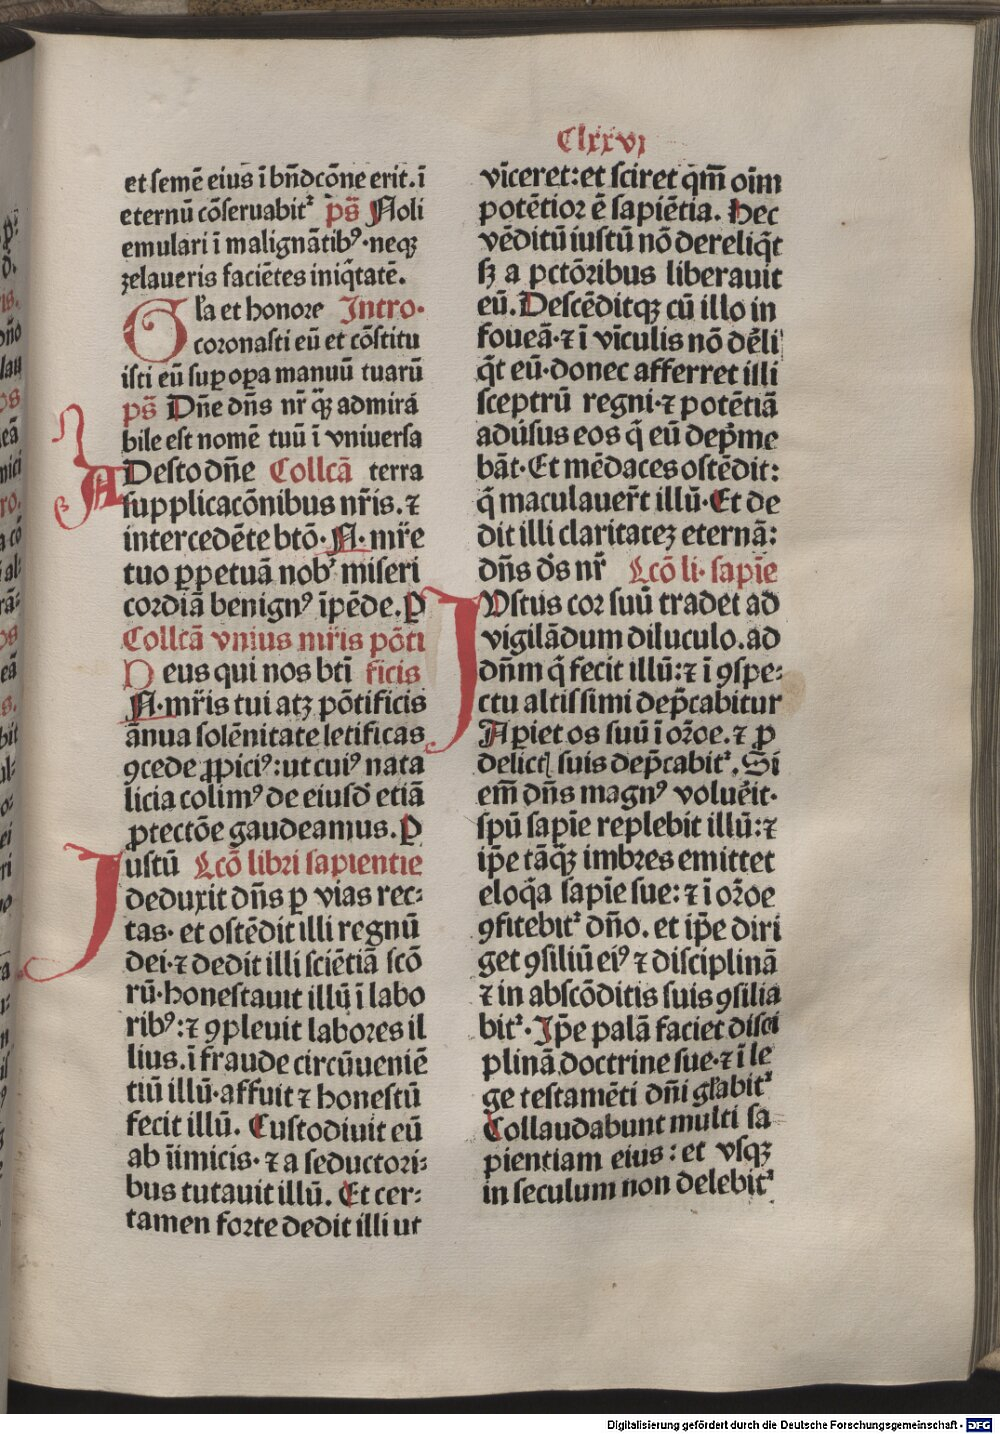 Clxxvi
et semē eius ī bn̄dcōne erit. ī
eternū cōseruabitꝛ ps̄ Noli
emulari ī malignātibꝰ·neqꝫ
zelaueris faciētes iniq̄tatē.
Gl'a et honore Intro·
coronasti eū et cōstitu
isti eū suꝑ oꝑa manuū tuarū
ps̄ Dn̄e dn̄s nr̄ qꝫ̄ admirá
bile est nomē tuū ī vniuersa
ADesto dn̄e Collcā terra
supplicacōnibus nr̄is. ⁊
intercedēte btō· N· mr̄e
tuo ꝑpetuā nobꝛ miseri
cordiā benignꝰ īpēde. P
Collcā vnius mr̄is pōti
Deus qui nos btī ficis
N·mr̄is tui atqꝫ pōtificis
ānua solēnitate letificas
ꝯcede ꝓpiciꝰ: ut cuiꝰ nata
licia colimꝰ de eiusd̄ etiā
ꝓtectōe gaudeamus. P
Iustū Lcō libri sapientie
deduxit dn̄s ꝑ vias rec:
tas· et ostēdit illi regnū
dei·⁊ dedit illi sciētiā scō
rū·honestauit illū ī labo
ribꝰ: ⁊ ꝯpleuit labores il
lius. ī fraude circūueniē
tiū illū·affuit ⁊ honestū
fecit illū. Custodiuit eū
ab īimicis· ⁊ a seductori:
bus tutauit illū. Et cer:
tamen forte dedit illi ut
vīceret: et sciret qm̄ oīm
potētior ē sapiētia. Hec
vēditū iustū nō dereliq̄t
sꝫ a pctōribus liberauit
eū. Descēditqꝫ cū illo in
foueā·⁊ ī vīculis nō dēli
q̄t eū·donec afferret illi
sceptrū regni·⁊ potētiā
adūsus eos q̄ eū dep̄me
bāt·Et mēdaces ostēdit:
q̄ maculauer̄t illū·Et de
dit illi claritatez eternā:
dn̄s ds̄ nr̄ Lcō li· sapīe
IVstus cor suū tradet ad
vigilādum diluculo. ad
dn̄m q̄ fecit illū: ⁊ ī ꝯspe:
ctu altissimi dep̄cabitur
Aꝑiet os suū ī or̄oe. ⁊ ꝑ
delictꝭ suis dep̄cabitꝛ. Si
em̄ dn̄s magnꝰ voluēit·
spū sapīe replebit illū: ⁊
ip̄e tāqꝫ̄ imbres emittet
eloq̄a sapīe sue: ⁊ ī or̄oe
ꝯfitebitꝛ dn̄o. et ip̄e diri
get ꝯsiliū eiꝰ ⁊ disciplinā
⁊ in abscōditis suis ꝯsilia
bitꝛ· Ip̄e palā faciet disci
plinā doctrine sue·⁊ ī le
ge testamēti dn̄i gl'abitꝛ
Collaudabunt multi sa
pientiam eius: et vsqꝫ
in seculum non delebitꝛ
Digitalisierung gefördert durch die Deutsche Forschungsgemeinschaft - DFG